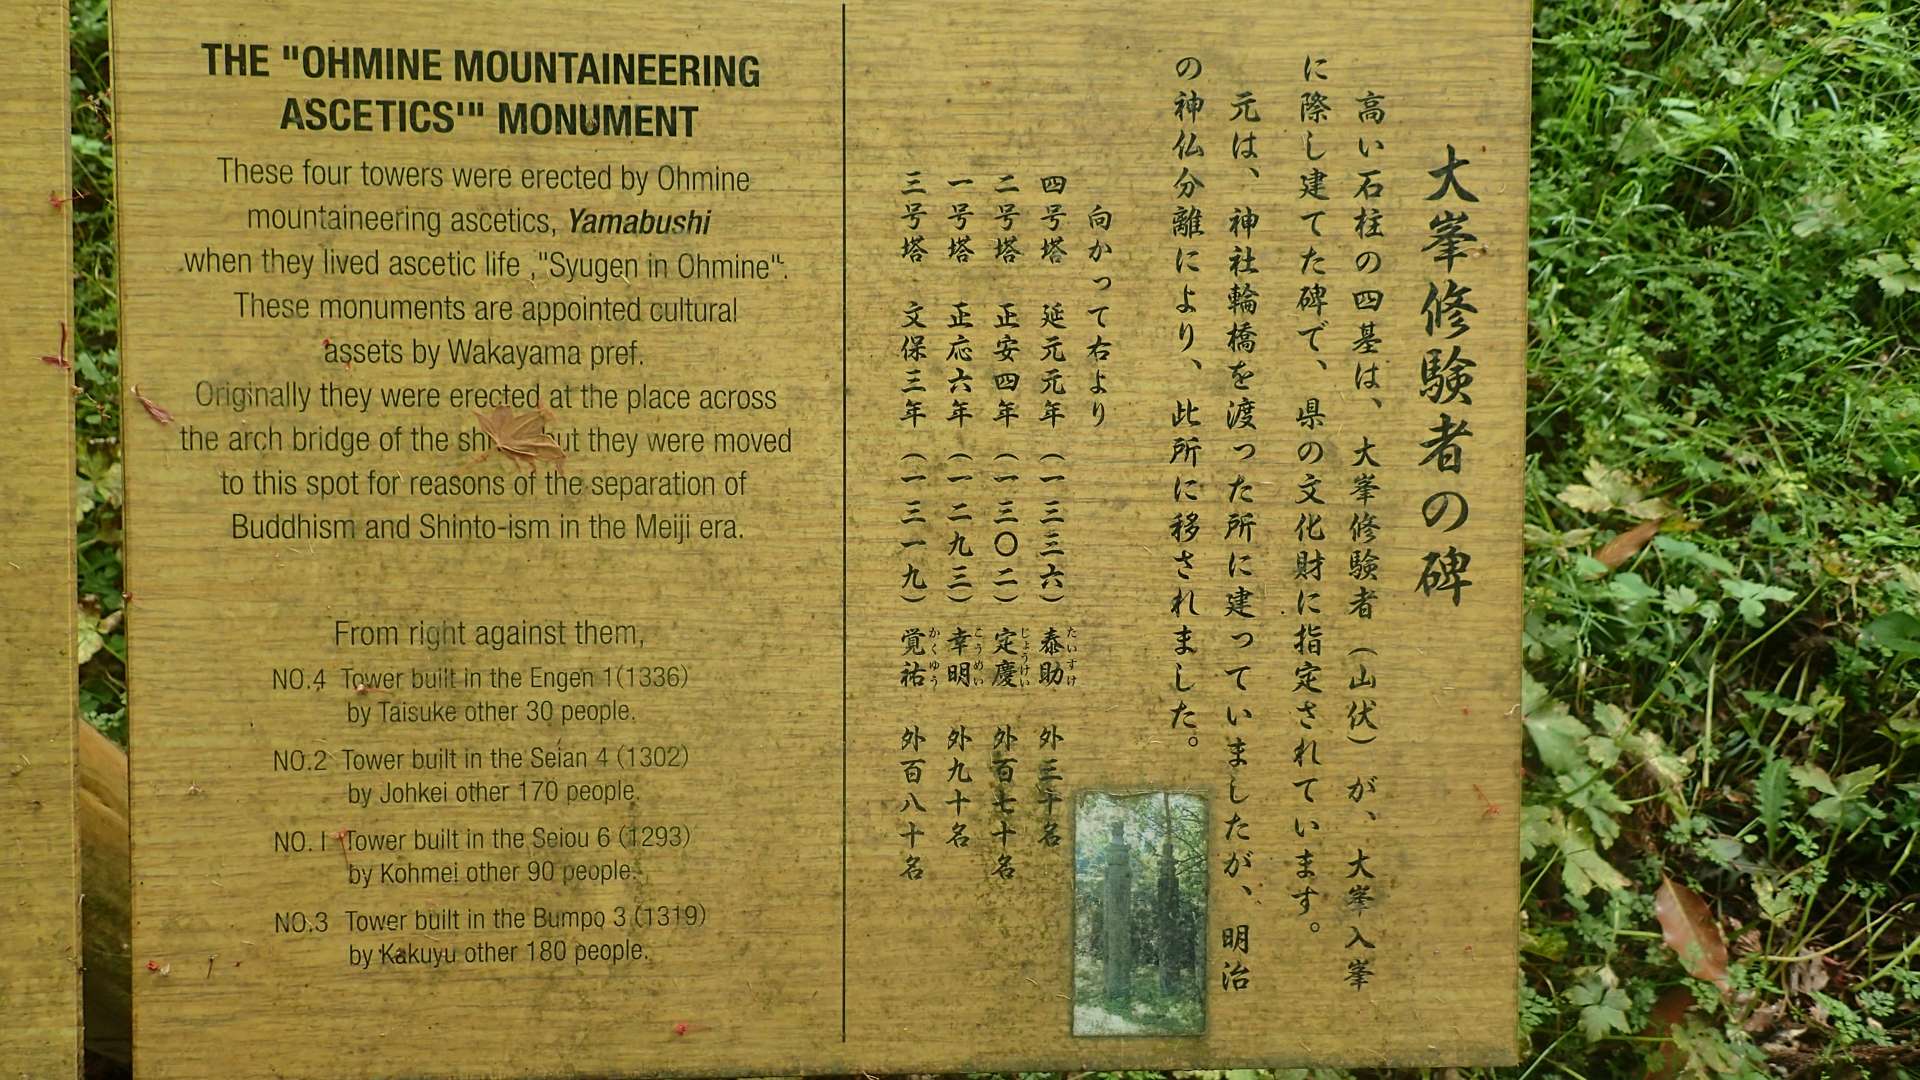 THE "OHMINE MOUNTAINEERING
ASCETICS'" MONUMENT
These four towers were erected by Ohmine
mountaineering ascetics, Yamabushi
when they lived ascetic life ,"Syugen in Ohmine".
These monuments are appointed cultural
assets by Wakayama pref.
Originally they were erected at the place across
the arch bridge of the but they were moved
to this spot for reasons of the separation of
Buddhism and Shinto-ism in the Meiji era.
From right against them,
NO.4 Tower built in the Engen 1(1336)
by Taisuke other 30 people.
NO.2 Tower built in the Seian 4 (1302)
by Johkei other 170 people.
NO.1 Tower built in the Seiou 6 (1293)
by Kohmei other 90 people.
NO.3 Tower built in the Bumpo 3 (1319)
by Kakuyu other 180 people.
大峯修験者の碑
高い石柱の四基は、大峯修験者（山伏）が、大峯入峯
に際し建てた碑で、県の文化財に指定されています。
元は、神社輪橋を渡った所に建っていましたが、明治
の神仏分離により、此所に移されました。
向かって右より
四号塔 延元元年（一三三六）泰助 たいすけ 外三十名
二号塔 正安四年（一三〇二）定慶 じょうけい 外百七十名
一号塔 正応六年（一二九三）幸明 こうめい 外九十名
三号塔 文保三年（一三一九）覚祐 かくゆう 外百八十名